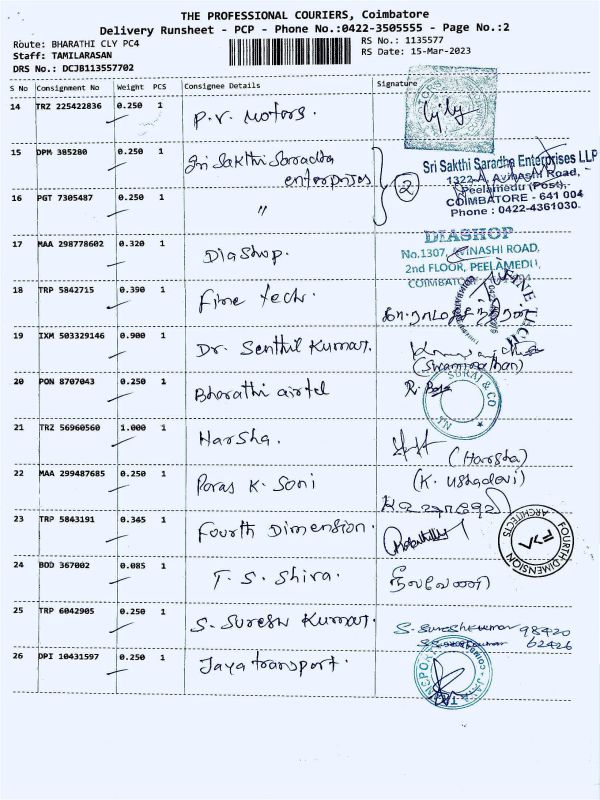 THE PROFESSIONAL COURIERS, Coimbatore
Delivery Runsheet - PCP - Phone No.:0422-3505555 - Page No.:2
Route: BHARATHI CLY PC4
RS No.: 1135577
Staff: TAMILARASAN
RS Date: 15-Mar-2023
DRS No.: DCJB113557702
S No Consignment No Weight PCS Consignee Details Signature
14 TRZ 225422836 0.250 1 P.V. Motors.
15 DPM 385280 0.250 1 Sri Sakthi Saradha
enterprises
Sri Sakthi Saradha Enterprises LLP
1322-A, Avinashi Road,
Peelamedu (Post),
COIMBATORE - 641 004
Phone : 0422-4361030.
16 PGT 7305487 0.250 1 " 2
17 MAA 298778602 0.320 1 Diashop.
DIASHOP
No.1307, AVINASHI ROAD,
2nd FLOOR, PEELAMEDU,
18 TRP 5842715 0.390 1 Fine tech.
19 IXM 503329146 0.900 1 Dr. Senthil Kumar.
(Swaminathan)
20 PON 8707043 0.250 1 Bharathi airtel
SURAJ & CO
21 TRZ 56960560 1.000 1 Harsha. (Harsha)
22 MAA 299487685 0.250 1 Paras K. Soni (K. Ushadevi)
23 TRP 5843191 0.365 1 Fourth Dimension.
FOURTH DIMENSION ARCHITECTS
24 BOD 367002 0.085 1 T. S. Shiva. நீலவேணி
25 TRP 6042905 0.250 1 S. Suresh Kumar. S. Sureshkumar 98420
62426
26 DPI 10431597 0.250 1 Jaya transport.